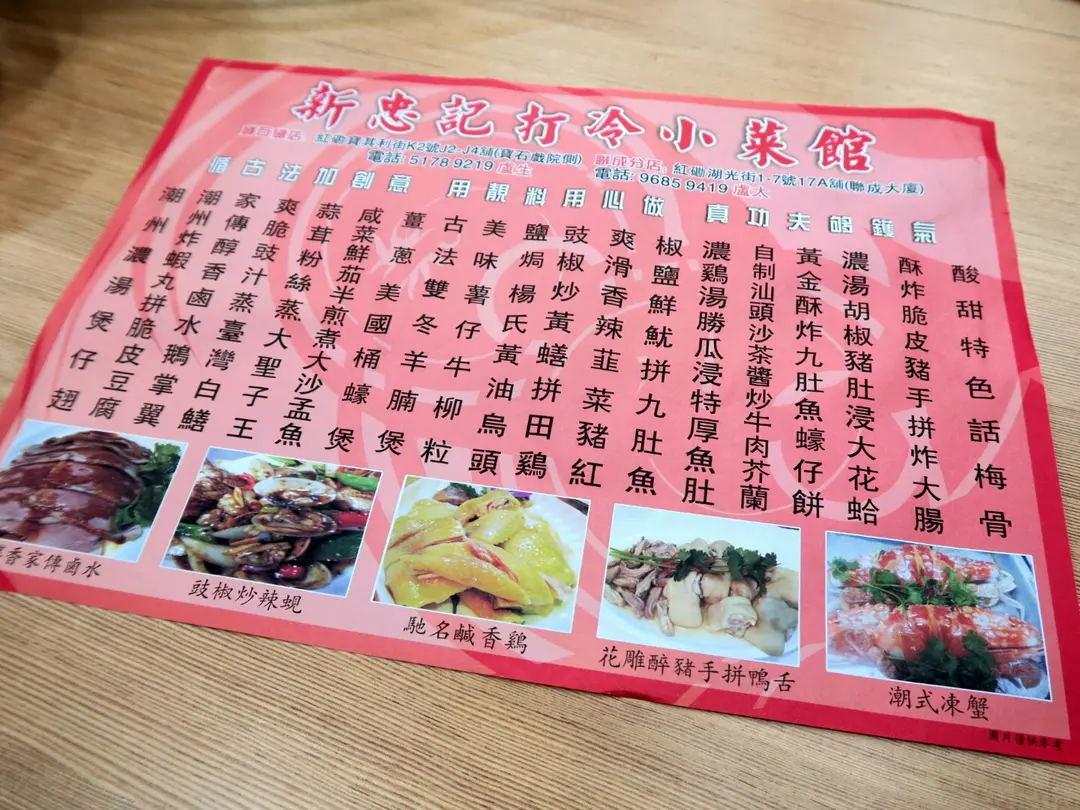 新忠記打冷小菜館
紅磡寶其利街K2號J2-J4舖(寶石戲院側)
電話: 5178 9219 盧生
聯成分店: 紅磡湖光街1-7號17A舖(聯成大廈)
電話: 9685 9419 盧大
循古法加創意 用靚料用心做 真功夫夠鑊氣
酸甜特色話梅骨
酥炸脆皮豬手拼炸大腸
濃湯胡椒豬肚浸大花蛤
黃金酥炸九肚魚蠔仔餅
自制汕頭沙茶醬炒牛肉芥蘭
濃鷄湯勝瓜浸特厚魚肚
椒鹽鮮魷拼九肚魚
爽滑香辣韮菜豬紅
豉椒炒黃鱔拼田鷄
鹽焗楊氏黃油烏頭
美味薯仔牛柳粒
古法雙冬羊腩煲
薑蔥美國桶蠔煲
咸菜鮮茄半煎煮大沙孟魚
蒜茸粉絲蒸大聖子王
爽脆豉汁蒸臺灣白鱔
家傳醇香鹵水鵝掌翼
潮州炸蝦丸拼脆皮豆腐
潮州濃湯煲仔翅
香家傳鹵水
豉椒炒辣蜆
馳名鹹香鷄
花雕醉豬手拼鴨舌
潮式凍蟹
圖片僅供參考